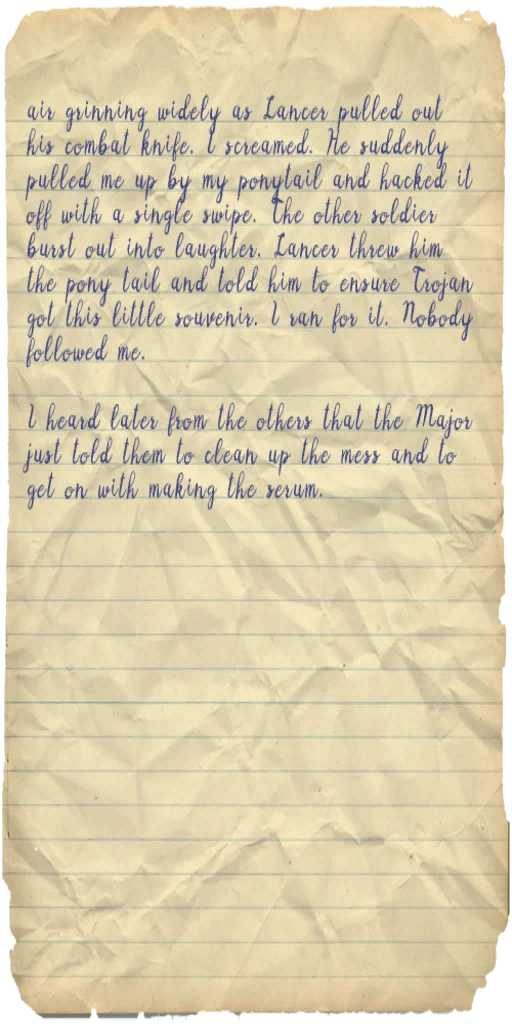 air grinning widely as Lancer pulled out
his combat knife. I screamed. He suddenly
pulled me up by my ponytail and hacked it
off with a single swipe. The other soldier
burst out into laughter. Lancer threw him
the pony tail and told him to ensure Trojan
got this little souvenir. I ran for it. Nobody
followed me.

I heard later from the others that the Major
just told them to clean up the mess and to
get on with making the serum.